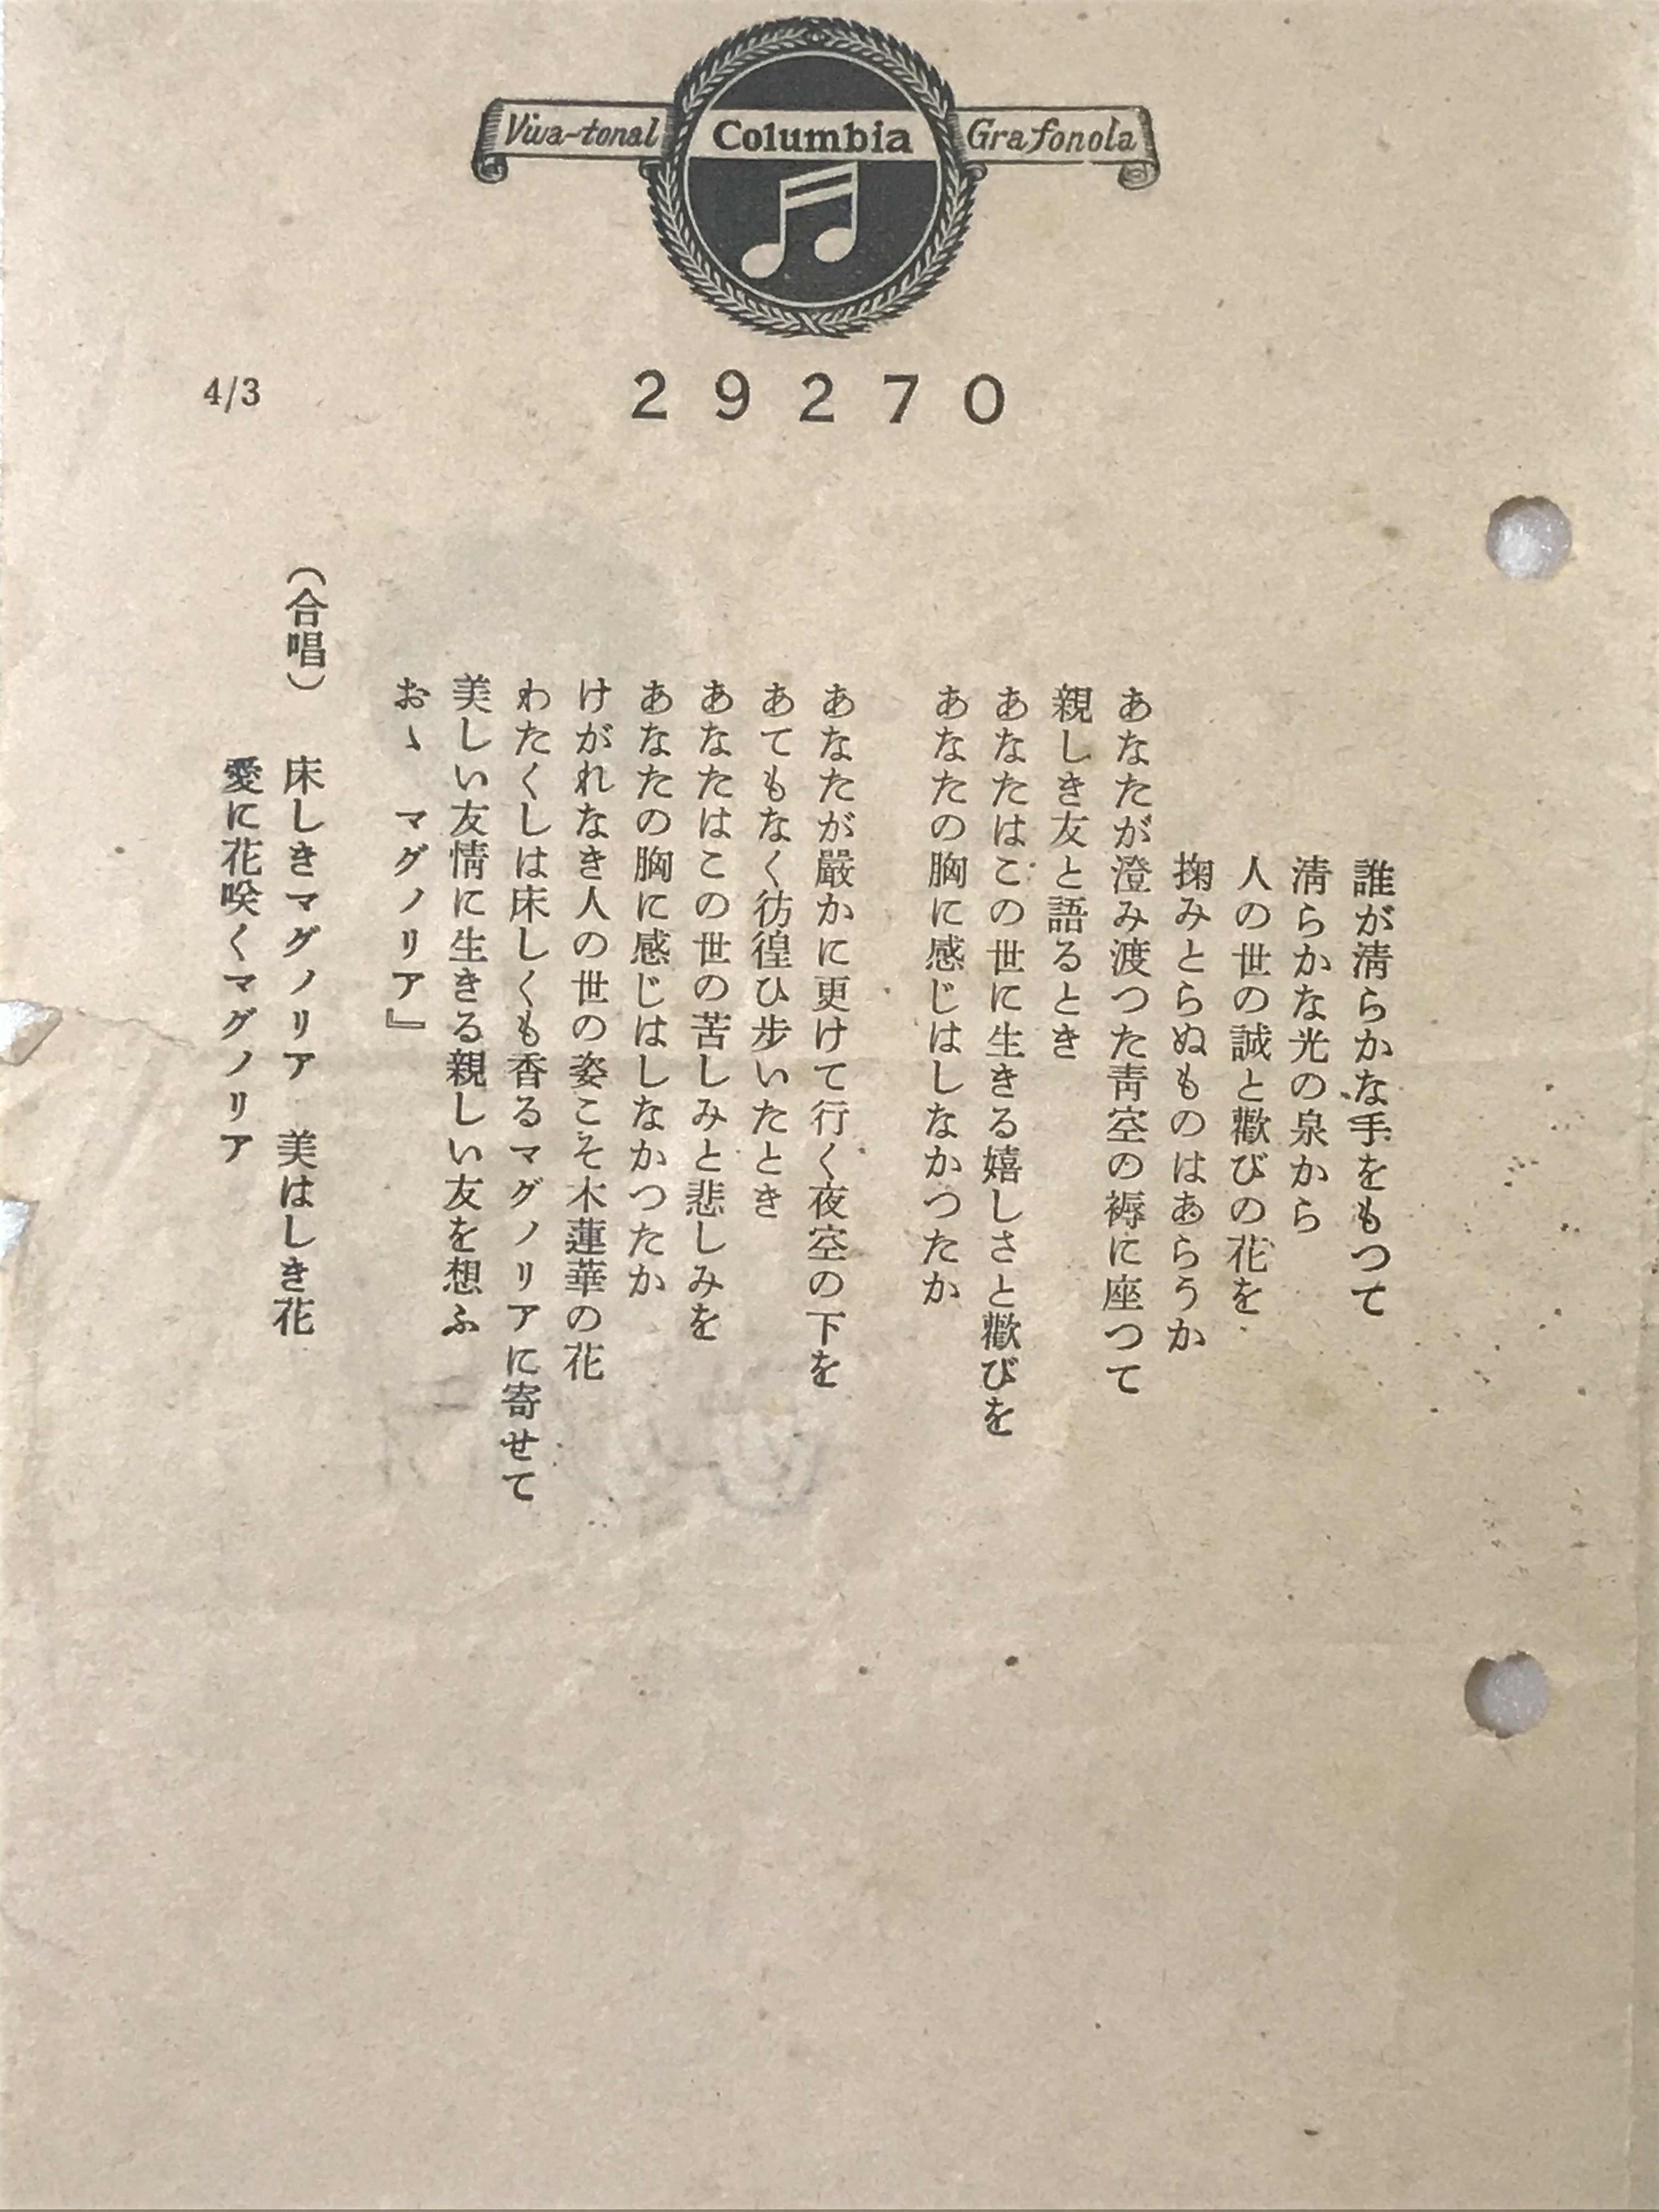 Viva-tonal Columbia Grafonola
29270
4/3
誰が淸らかな手をもつて
淸らかな光の泉から
人の世の誠と歡びの花を
掬みとらぬものはあらうか
あなたが澄み渡つた靑空の褥に座つて
親しき友と語るとき
あなたはこの世に生きる嬉しさと歡びを
あなたの胸に感じはしなかつたか
あなたが嚴かに更けて行く夜空の下を
あてもなく彷徨ひ步いたとき
あなたはこの世の苦しみと悲しみを
あなたの胸に感じはしなかつたか
けがれなき人の世の姿こそ木蓮華の花
わたくしは床しくも香るマグノリアに寄せて
美しい友情に生きる親しい友を想ふ
おゝ　マグノリア』
(合唱)　床しきマグノリア　美はしき花
愛に花咲くマグノリア